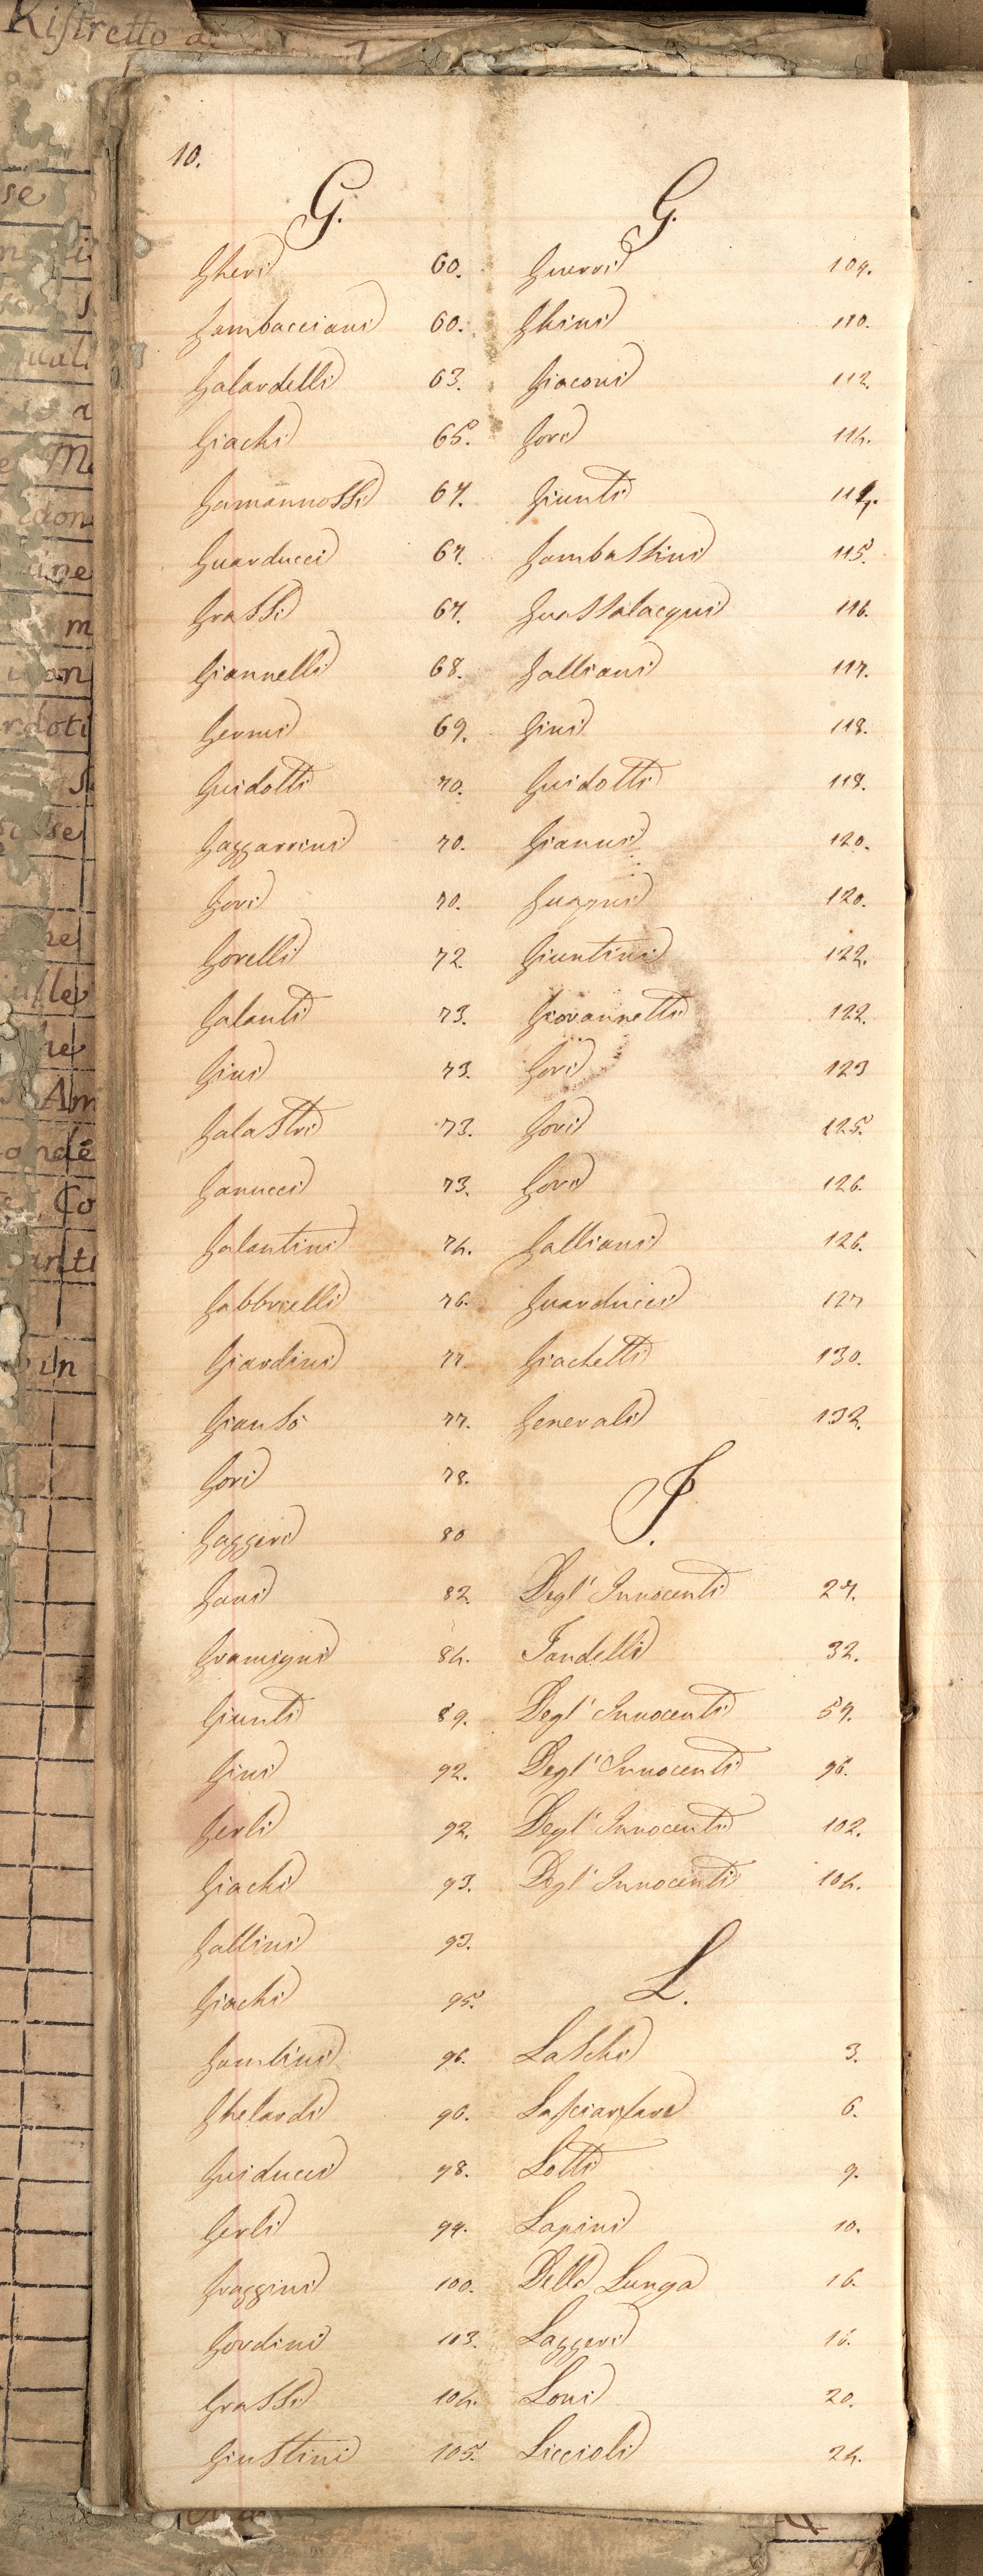 Ristretto di
10.
G.
Gheri 60.
Gambacciani 60.
Galardelli 63.
Giachi 65.
Gamannossi 67.
Guarducci 67.
Grassi 67.
Giannelli 68.
Germi 69.
Guidotti 70.
Gazzarrini 70.
Gori 70.
Gorelli 72.
Galanti 73.
Gini 73.
Galastri 73.
Ganucci 73.
Galantini 74.
Gabbrielli 76.
Giardini 77.
Gianfò 77.
Gori 78.
Gaggeri 80
Gani 82.
Gramigni 84.
Giunti 89.
Gini 92.
Gerli 92.
Giachi 93.
Gallini 93.
Giachi 95.
Gantini 96.
Ghelardi 96.
Guiducci 98.
Gerli 99.
Graggini 100.
Gordini 103.
Grassi 104.
Giustini 105.
G.
Guerri 109.
Ghini 110.
Giaconi 112.
Gori 114.
Giunti
Gambassini 115.
Guastalacqui 116.
Galliani 117.
Gini 118.
Guidotti 118.
Gianni 120.
Guagni 120.
Giuntini 122.
Giovannetti 122.
Gori 123
Gori 125.
Gori 126.
Galliani 126.
Guarducci 127
Giachetti 130.
Generali 132.
I.
Degl' Innocenti 27.
Iandelli 32.
Degl' Innocenti 59.
Degl' Innocenti 96.
Degl' Innocenti 102.
Degl' Innocenti 104.
L.
Laschi 3.
Lasciarfare 6.
Lotti 9.
Lapini 10.
Della Lunga 16.
Laggeri 18.
Loni 20.
Liccioli 24.